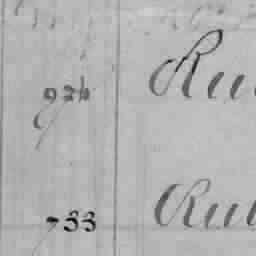 926 Ru
733 Ru